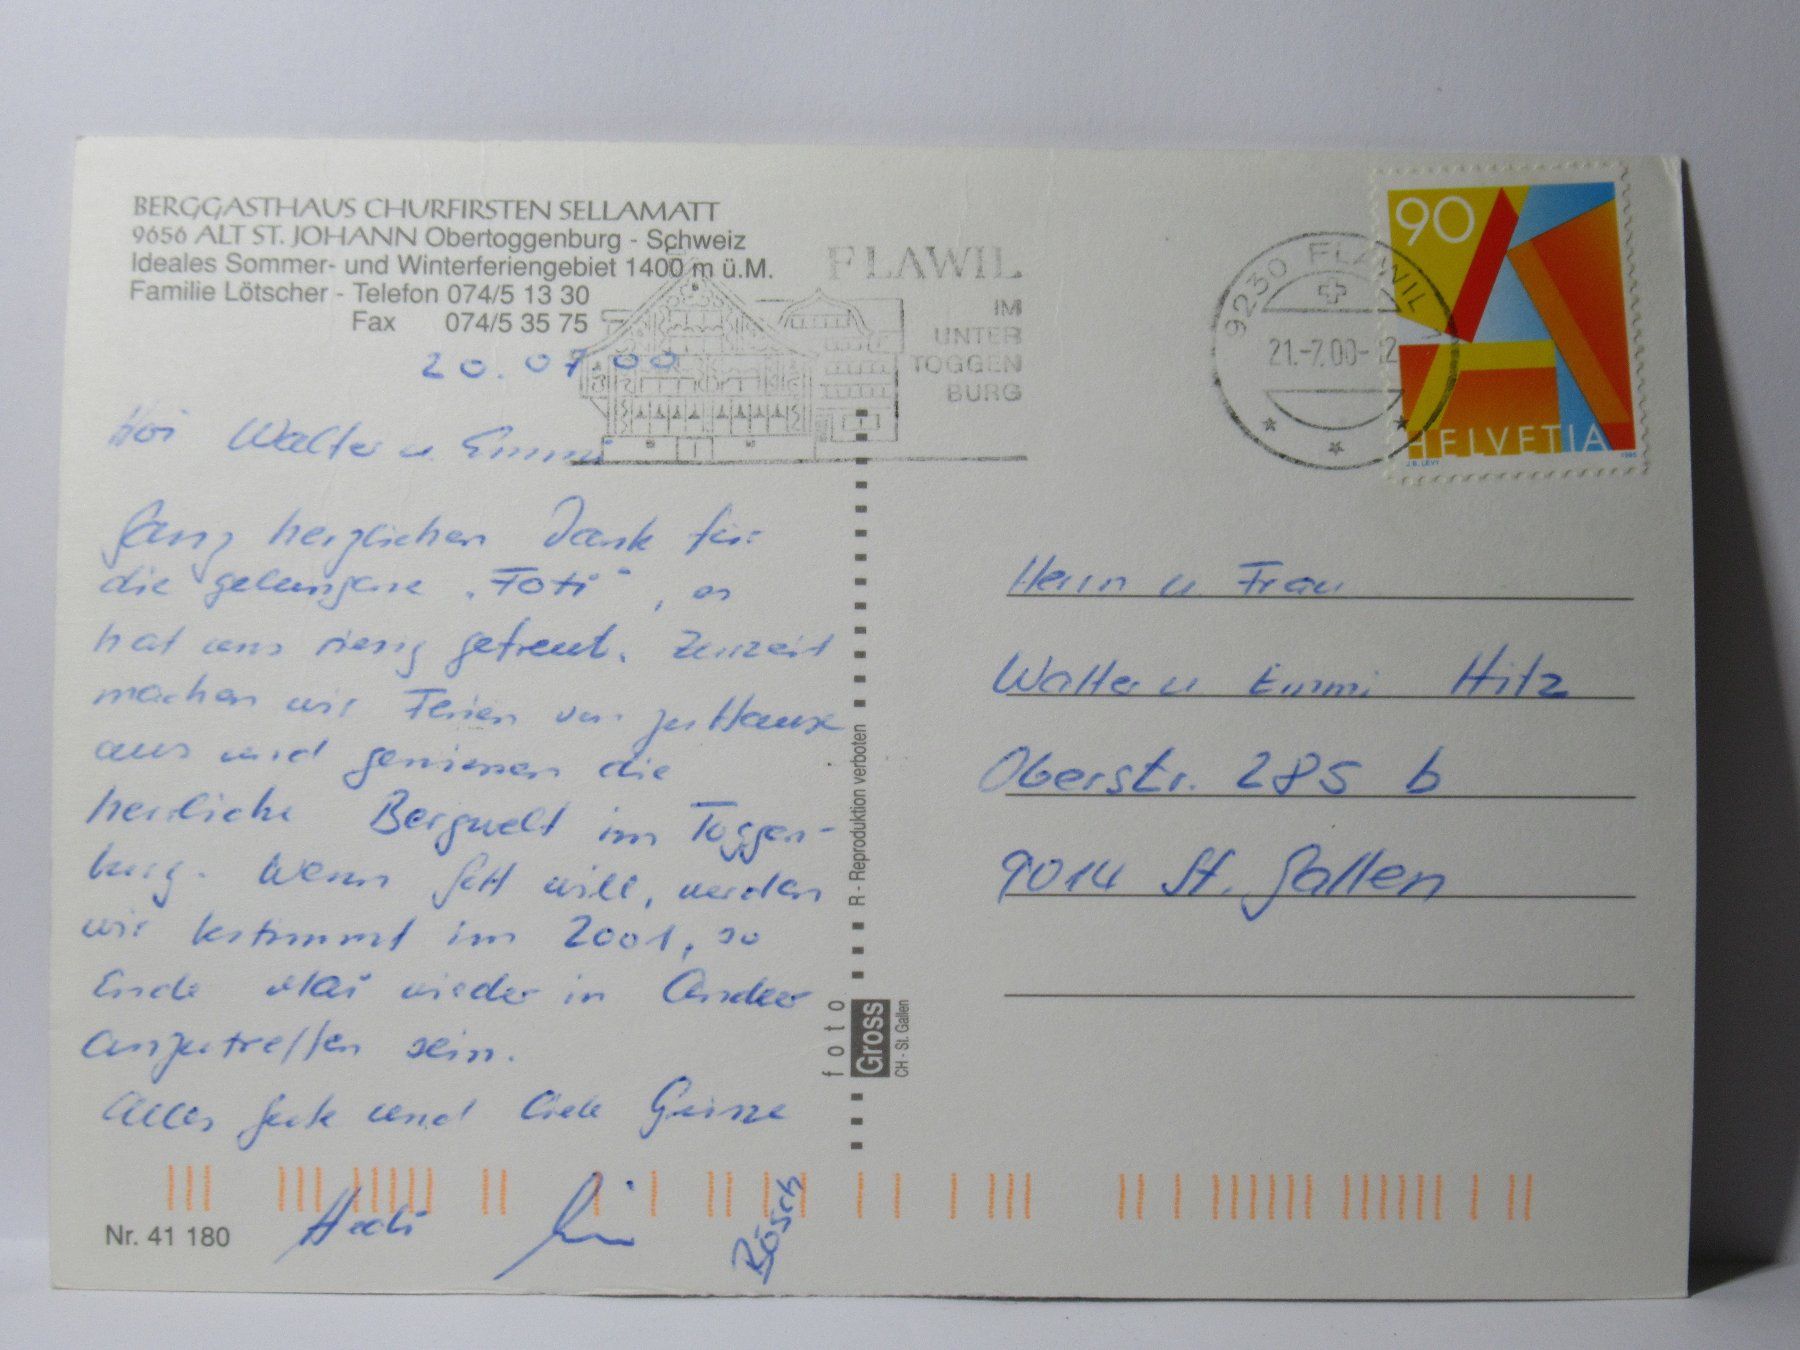 BERGGASTHAUS CHURFIRSTEN SELLAMATT
9656 ALT ST. JOHANN Obertoggenburg - Schweiz
Ideales Sommer- und Winterferiengebiet 1400 m ü.M.
Familie Lötscher - Telefon 074/5 13 30
Fax 074/5 35 75
20.07 00
Hoi Walter u. Emmi
Ganz herzlichen Dank für
die gelungene "Foti", es
hat uns riesig gefreut. Zurzeit
machen wir Ferien von zu Hause
aus und geniessen die
herrliche Bergwelt im Toggen-
burg. Wenn Gott will, werden
wir bestimmt im 2001, so
Ende Mai wieder in Andeer
anzutreffen sein.
Alles Gute und liebe Grüsse
Hedi
Rösch
Nr. 41 180
R - Reproduktion verboten
foto
Gross
CH - St. Gallen
FLAWIL
IM
UNTER
TOGGEN
BURG
9230 FLAWIL
21.-7.00-12
90
HELVETIA
J.B. LEVY 1995
Herrn u Frau
Walter u Emmi Hitz
Oberstr. 285 b
9014 St. Gallen